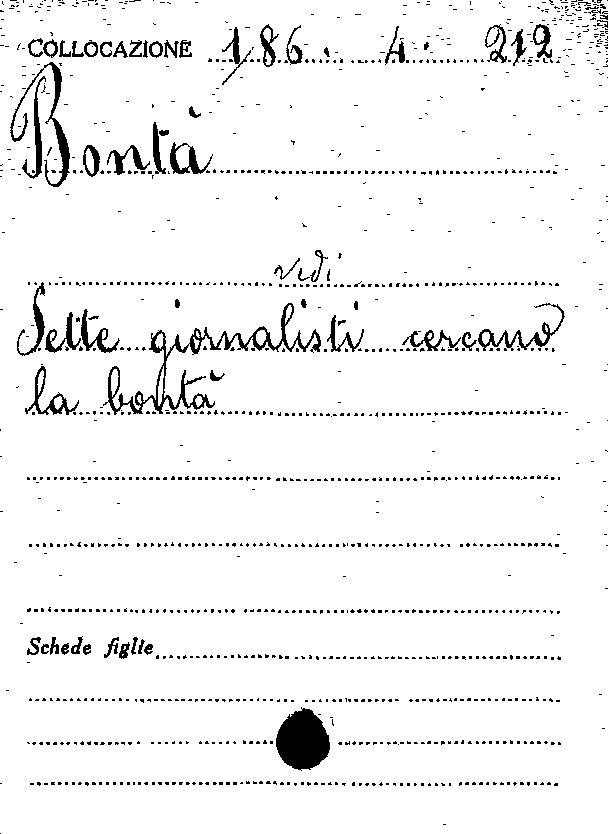 COLLOCAZIONE 186. 4. 212
Bontà
vedi
Sette giornalisti cercano
la bontà
Schede figlie